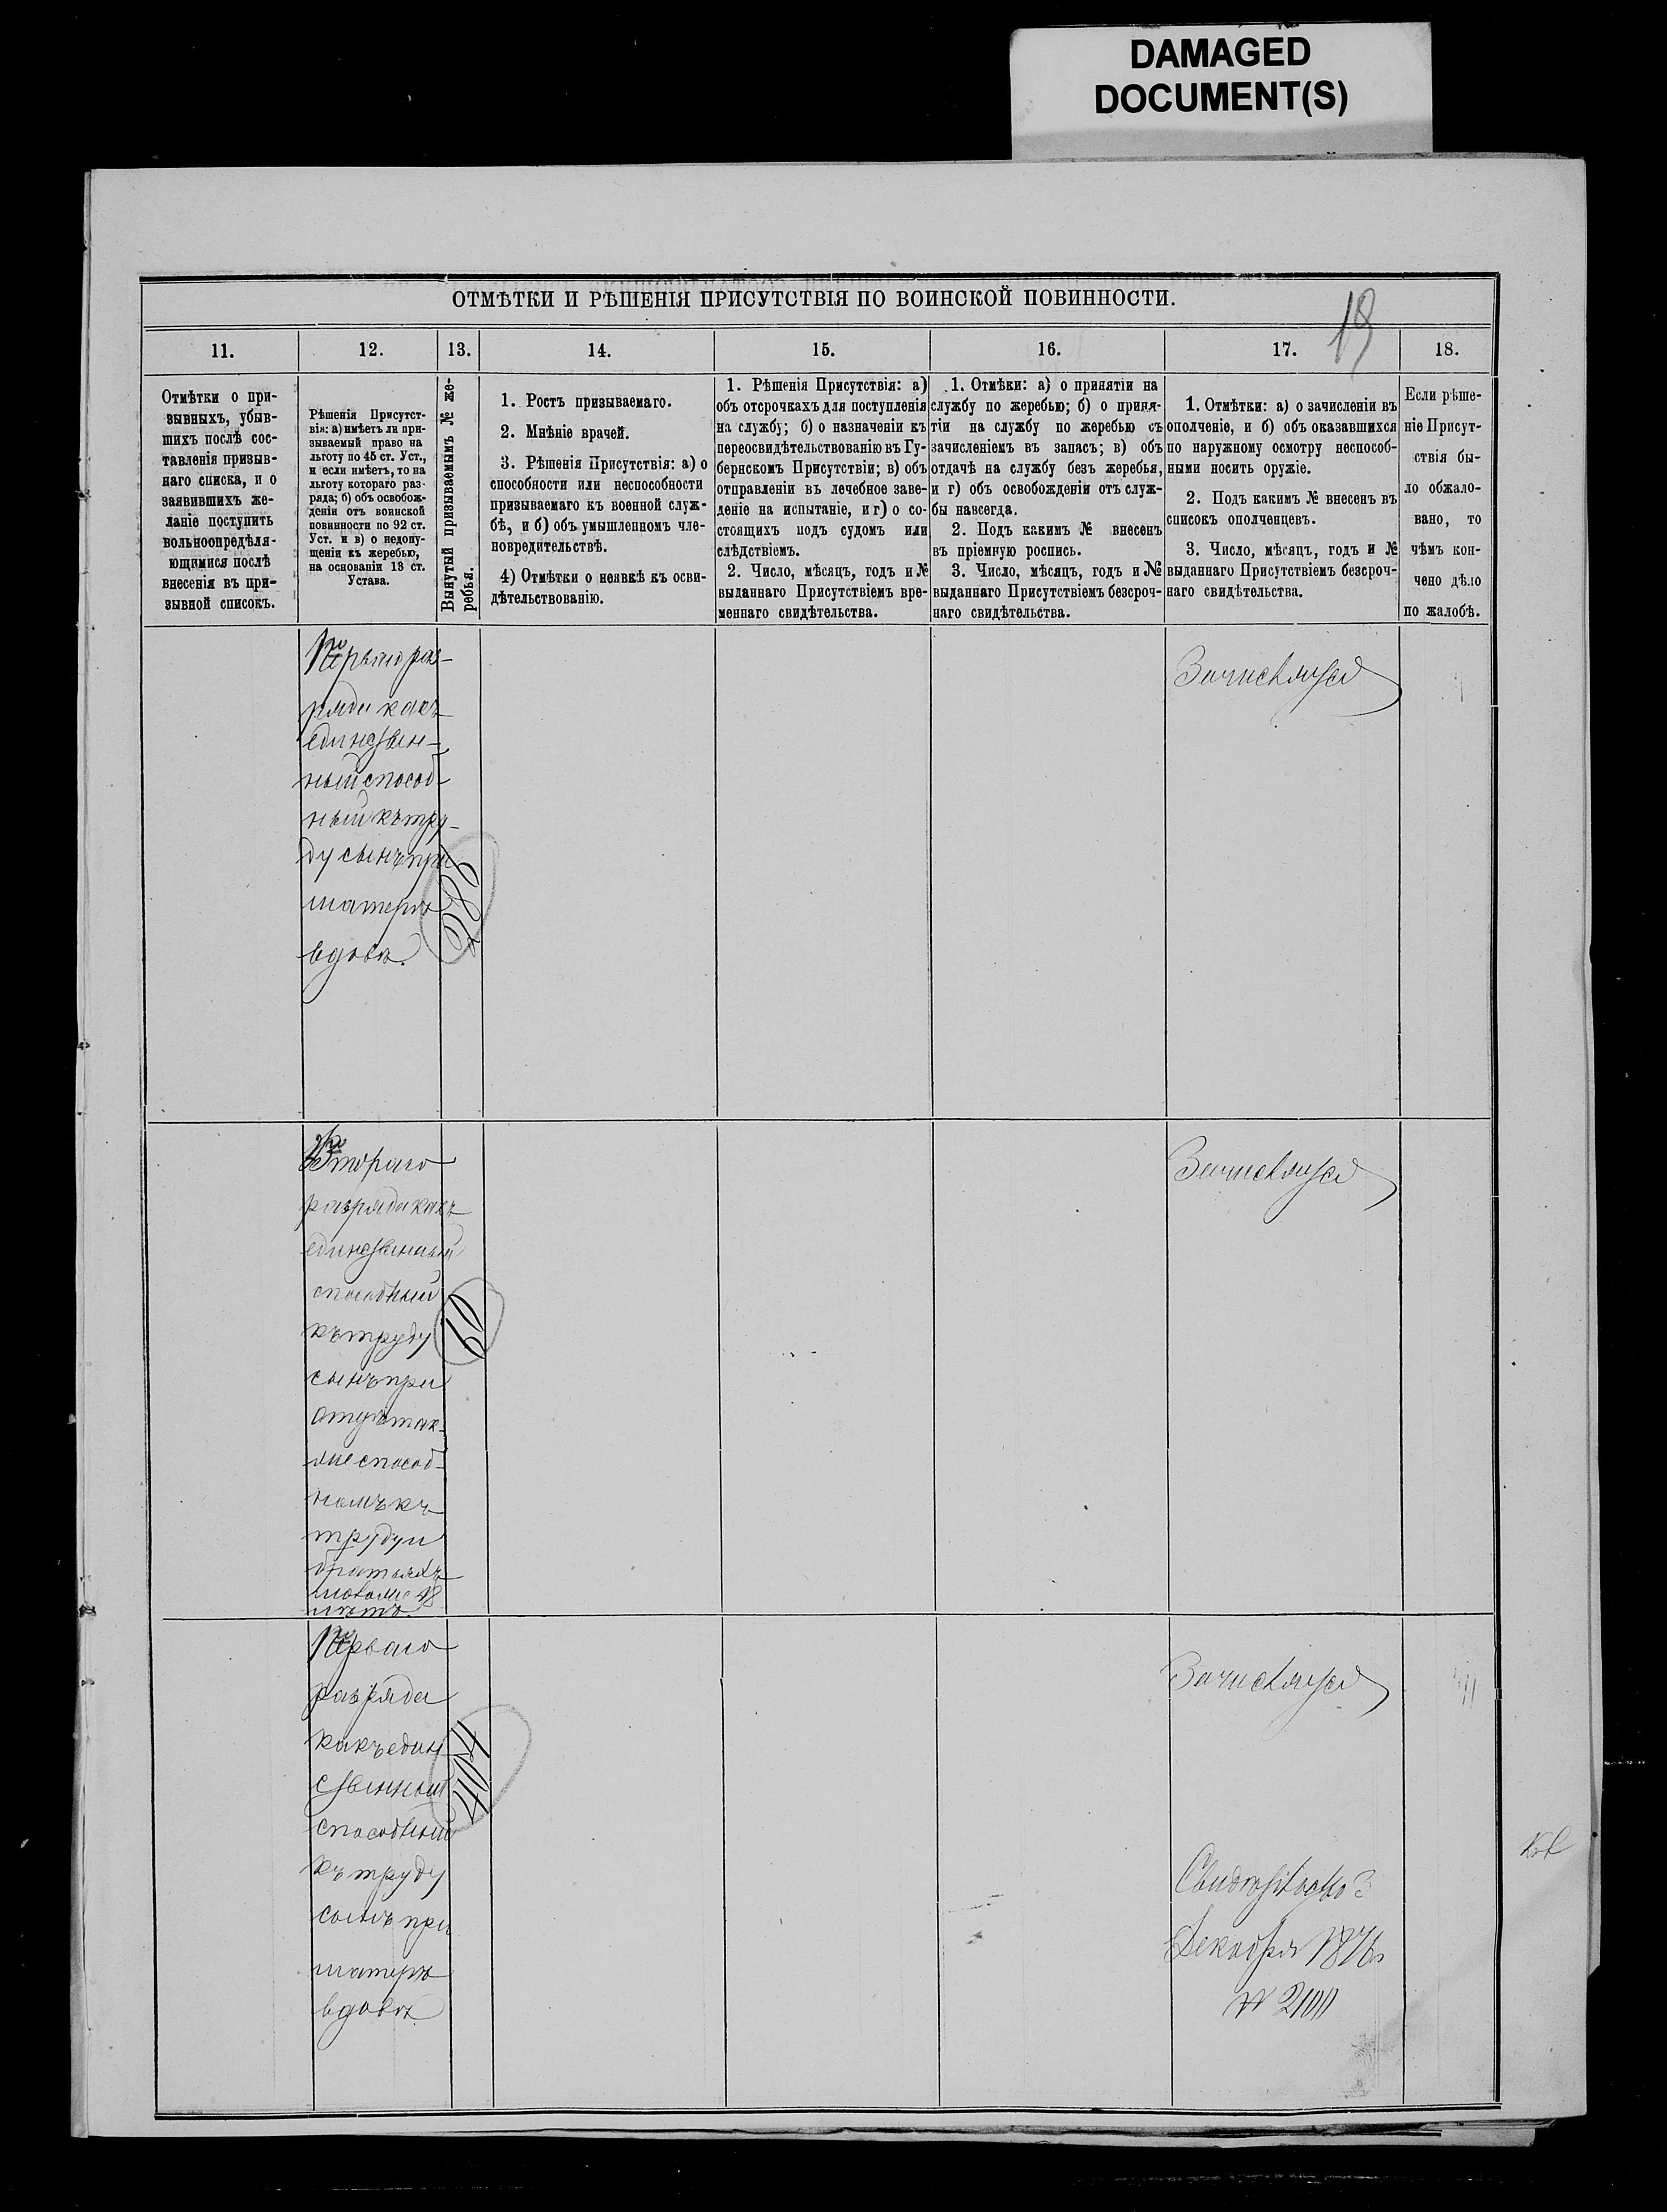 DAMAGED
DOCUMENT(S)
ОТМѢТКИ И РѢШЕНІЯ ПРИСУТСТВІЯ ПО ВОИНСКОЙ ПОВИННОСТИ.
11.
12.
13.
14.
15.
16.
17.
18.
Отмѣтки о при-
зывныхъ, убыв-
шихъ послѣ сос-
тавленія призыв-
наго списка, и о
заявившихъ же-
ланіе поступить
вольноопредѣля-
ющимися послѣ
внесенія въ при-
зывной списокъ.
Рѣшенія Присутст-
вія: а) имѣетъ ли при-
зываемый право на
льготу по 45 ст. Уст.,
и если имѣетъ, то на
льготу котораго раз-
ряда; б) объ освобож-
деніи отъ воинской
повинности по 92 ст.
Уст. и в) о недопу-
щеніи къ жеребью,
на основаніи 13 ст.
Устава.
Вынутый призываемымъ № же-
ребья.
1. Ростъ призываемаго.
2. Мнѣніе врачей.
3. Рѣшенія Присутствія: а) о
способности или неспособности
призываемаго къ военной служ-
бѣ, и б) объ умышленномъ чле-
новредительствѣ.
4) Отмѣтки о неявкѣ къ осви-
дѣтельствованію.
1. Рѣшенія Присутствія: а)
объ отсрочкахъ для поступленія
на службу; б) о назначеніи къ
переосвидѣтельствованію въ Гу-
бернскомъ Присутствіи; в) объ
отправленіи въ лечебное заве-
деніе на испытаніе, и г) о со-
стоящихъ подъ судомъ или
слѣдствіемъ.
2. Число, мѣсяцъ, годъ и №
выданнаго Присутствіемъ вре-
меннаго свидѣтельства.
1. Отмѣки: а) о принятіи на
службу по жеребью; б) о приня-
тіи на службу по жеребью съ
зачисленіемъ въ запасъ; в) объ
отдачѣ на службу безъ жеребья,
и г) объ освобожденіи отъ служ-
бы навсегда.
2. Подъ какимъ № внесенъ
въ пріемную роспись.
3. Число, мѣсяцъ, годъ и №
выданнаго Присутствіемъ безсроч-
наго свидѣтельства.
1. Отмѣтки: а) о зачисленіи въ
ополченіе, и б) объ оказавшихся
по наружному осмотру неспособ-
ными носить оружіе.
2. Подъ какимъ № внесенъ въ
списокъ ополченцевъ.
3. Число, мѣсяцъ, годъ и №
выданнаго Присутствіемъ безсроч-
наго свидѣтельства.
Если рѣше-
ніе Присут-
ствія бы-
ло обжало-
вано, то
чѣмъ кон-
чено дѣло
по жалобѣ.
Перваго раз-
ряда какъ
единствен-
ный способ-
ный къ тру-
ду сынъ при
матери
вдовѣ.
286
Зачисляется
Втораго
разряда какъ
единственный
способный
къ труду
сынъ при
отцѣ так-
же способ-
номъ къ
труду и
братьяхъ
моложе 18
лѣтъ.
60
Зачисляется
Перваго
разряда
какъ един
ственный
способный
къ труду
сынъ при
матери
вдовѣ
404
Зачисляется
Декабря 1876
№ 2100